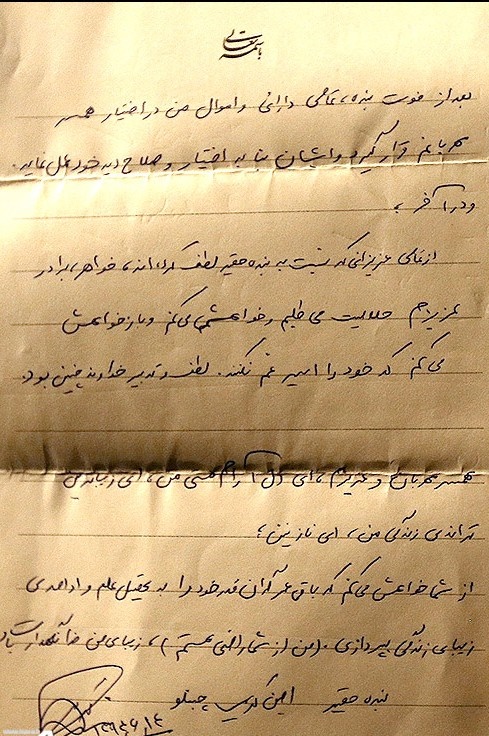 باسمه تعالی
بعد از فوت بنده، تمامی دارائی و اموال من در اختیار همسر
مهربانم قرار گیرد و ایشان بنا به اختیار و صلاح دید خود عمل نماید.
و در آخر :
از تمامی عزیزانی که نسبت به بنده حقیر لطف کرده‌اند، خواهر، برادر
عزیزم حلالیت می طلبم و خداحافظی می‌کنم و باز خواهش
می کنم که خود را اسیر غم نکنند. لطف و تدبیر خداوند چنین بود.
همسر مهربانم و عزیزم، ای دل آرام هستی من، ای زیباترین
ترانه‌ی زندگی من، ای نازنین؛
از شما خواهش می‌کنم که باقی عمر گران قدر خود را به تحصیل علم و ادامه‌ی
زیبای زندگی بپردازی. (من از شما راضی هستم)، زیبای من خدا نگهدارت باد
بنده حقیر امین کریمی چبنلو